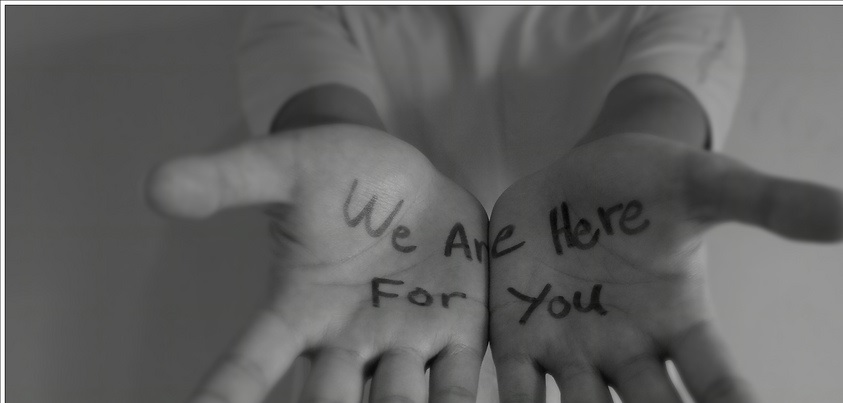 We Are Here
For You